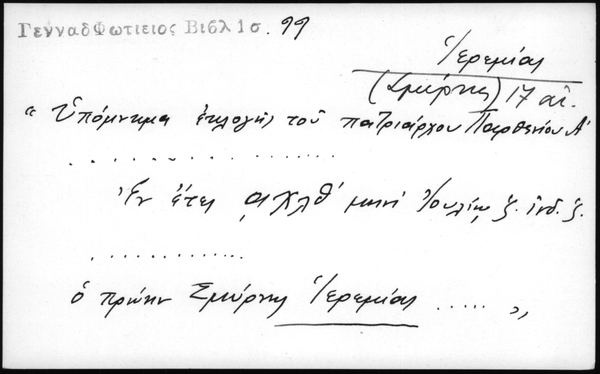 ΓενναδΦωτιειος Βιβλ 1σ. 99
Ἱερεμίας
(Σμύρνης) 17 αἰ.
“Ὑπόμνημα ἐκλογῆς τοῦ πατριάρχου Παρθενίου Α'
..................
Ἐν ἔτει ͵αχλθ' μηνὶ Ἰουλίῳ ζ. ἰνδ. ζ.
.............
ὁ πρώην Σμύρνης Ἱερεμίας ..... „